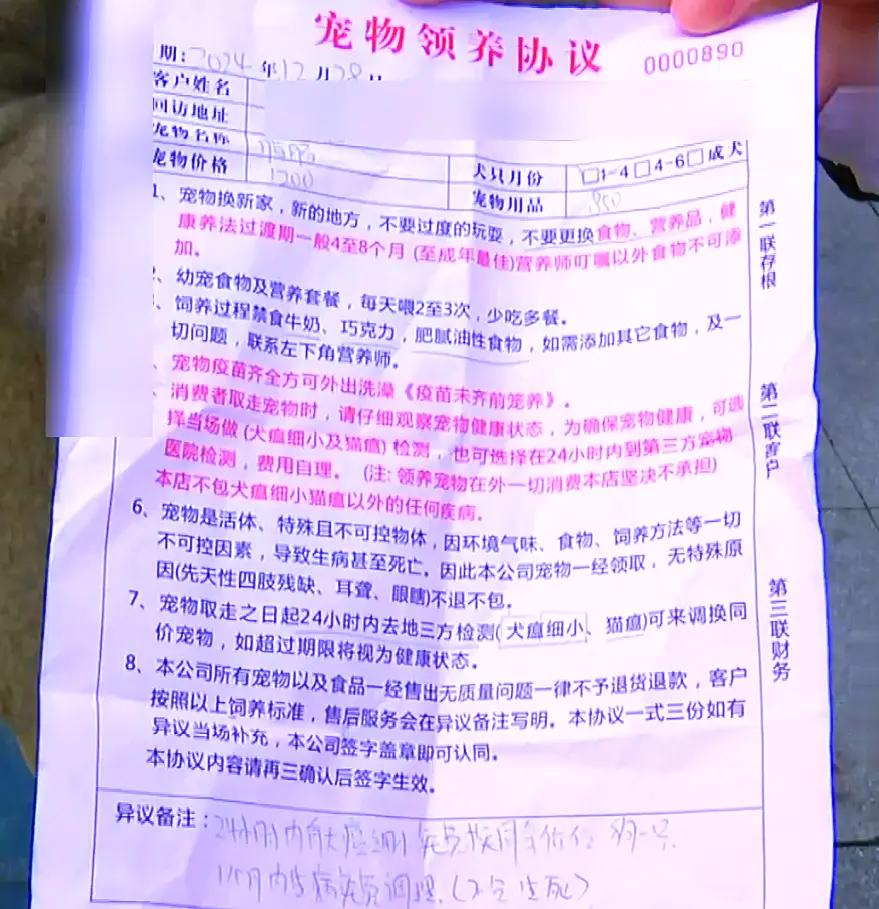 宠物领养协议
0000890
期：2024年12月28日
客户姓名
回访地址
宠物名称
犬只月份 □1-4□4-6□成犬
宠物价格 1200 宠物用品
1、宠物换新家，新的地方，不要过度的玩耍，不要更换食物、营养品，健
康养法过渡期一般4至8个月 (至成年最佳)营养师叮嘱以外食物不可添
加。
、幼宠食物及营养套餐，每天喂2至3次，少吃多餐。
、饲养过程禁食牛奶、巧克力，肥腻油性食物，如需添加其它食物，及一
切问题，联系左下角营养师。
、宠物疫苗齐全方可外出洗澡《疫苗未齐前笼养》。
、消费者取走宠物时，请仔细观察宠物健康状态，为确保宠物健康，可选
择当场做 (犬瘟细小及猫瘟) 检测，也可选择在24小时内到第三方宠物
医院检测，费用自理。 (注: 领养宠物在外一切消费本店坚决不承担)
本店不包犬瘟细小猫瘟以外的任何疾病。
6、宠物是活体、特殊且不可控物体，因环境气味、食物、饲养方法等一切
不可控因素，导致生病甚至死亡。因此本公司宠物一经领取，无特殊原
因(先天性四肢残缺、耳聋、眼瞎)不退不包。
7、宠物取走之日起24小时内去地三方检测(犬瘟细小、猫瘟)可来调换同
价宠物，如超过期限将视为健康状态。
8、本公司所有宠物以及食品一经售出无质量问题一律不予退货退款，客户
按照以上饲养标准，售后服务会在异议备注写明。本协议一式三份如有
异议当场补充，本公司签字盖章即可认同。
本协议内容请再三确认后签字生效。
异议备注：24小时内有犬瘟细小免费换同等价位 狗一只.
1个月内生病免费调理.(不包生死)
第一联存根
第二联客户
第三联财务